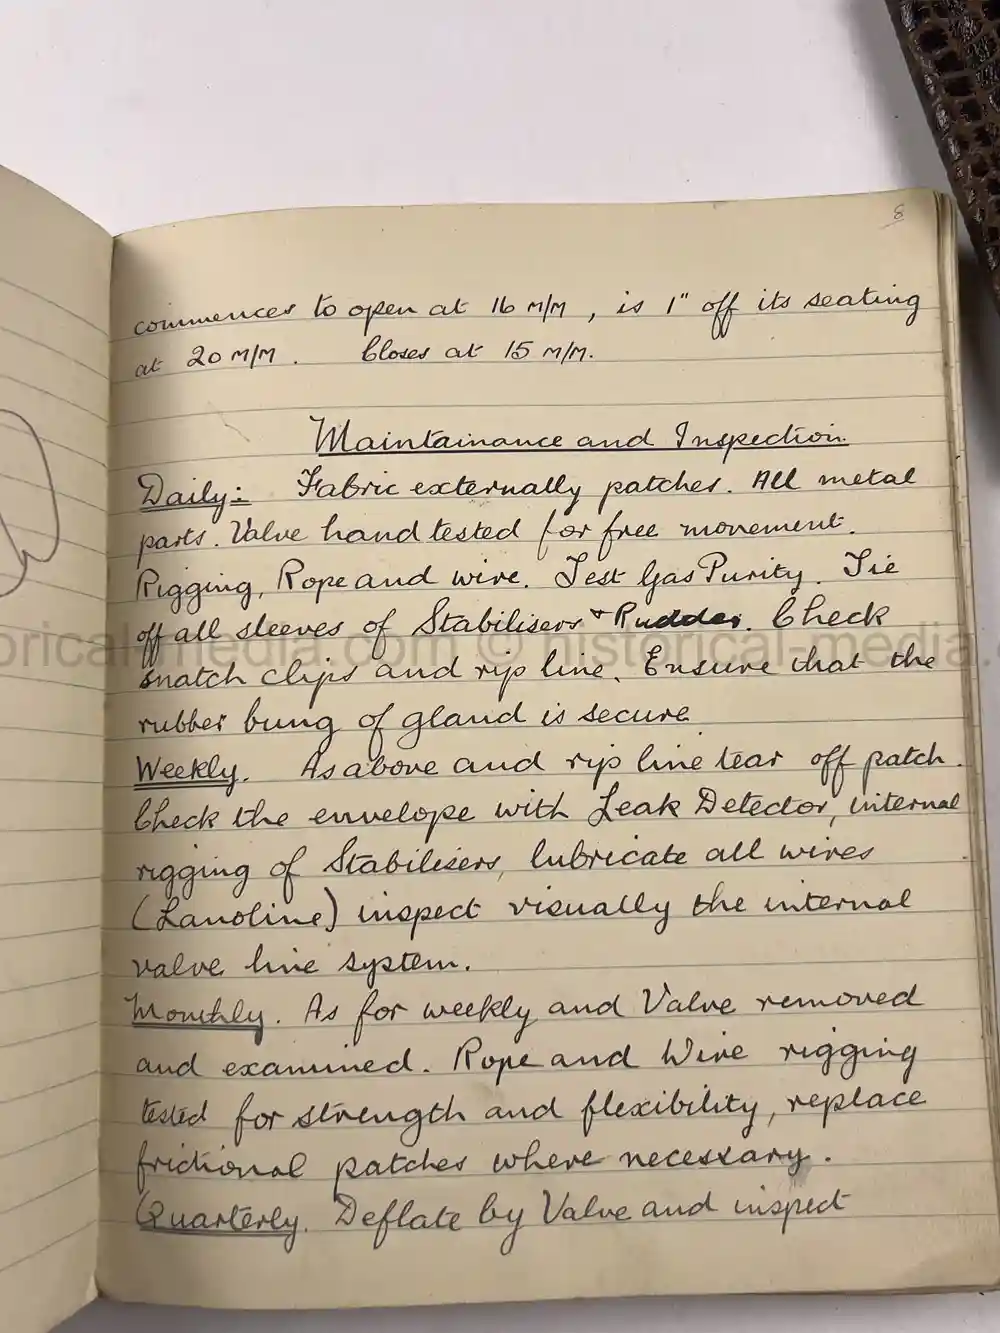 8
commences to open at 16 M/M, is 1" off its seating
at 20 M/M. Closes at 15 M/M.
Maintainance and Inspection
Daily:- Fabric externally patches. All metal
parts. Valve hand tested for free movement.
Rigging, Rope and wire. Test Gas Purity. Tie
off all sleeves of Stabilisers + Rudder. Check
snatch clips and rip line. Ensure that the
rubber bung of gland is secure
Weekly. As above and rip line tear off patch.
Check the envelope with Leak Detector, internal
rigging of Stabilisers, lubricate all wires
(Lanoline) inspect visually the internal
valve line system.
Monthly. As for weekly and Valve removed
and examined. Rope and Wire rigging
tested for strength and flexibility, replace
frictional patches where necessary.
Quarterly. Deflate by Valve and inspect
orical-media.com © historical-media.